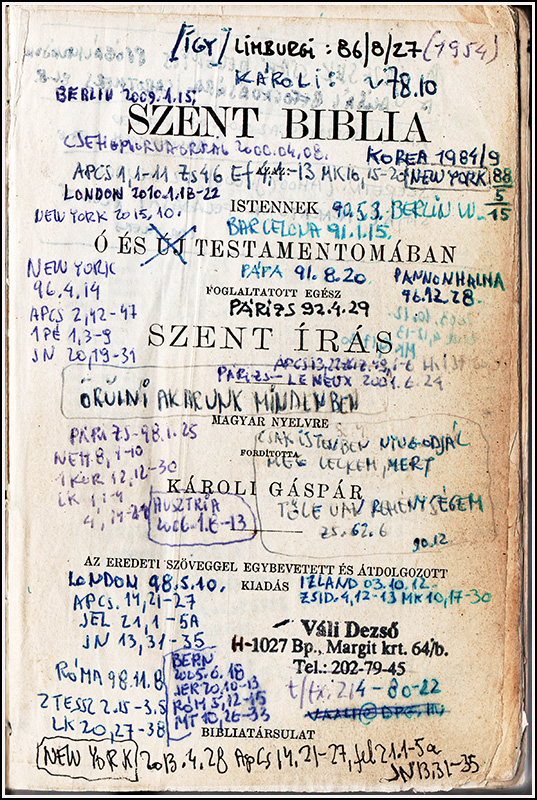 [ÍGY] LIMBURGI: 86/8/27 (1954)
KÁROLI: 78.10
BERLIN 2009.1.15.
SZENT BIBLIA
2000.04.08. KOREA 1984/9
APCS 1,1-11 ZS 46 Ef 4,1-13 MK 16,15-20 NEW YORK 88
5
15
LONDON 2010.1.18-22
ISTENNEK 90.5.3. BERLIN W.
NEW YORK 2015,10.
BARCELONA 91.1.15.
Ó ÉS ÚJ TESTAMENTOMÁBAN
NEW YORK PÁPA 91.8.20. PANNONHALMA
96.4.14 FOGLALTATOTT EGÉSZ 96.12.28.
APCS 2,42-47 PÁRIZS 92.4.29
1PÉ 1,3-9 SZENT ÍRÁS
JN 20,19-31
PÁRIZS - LE NEUX 2001.6.24
ÖRÜLNI AKARUNK MINDENBEN
MAGYAR NYELVRE
PÁRIZS - 98.1.25 CSAK ISTENBEN NYUGODJÁL
NEH.8,1-10 FORDÍTOTTA MEG LELKEM, MERT
1 KOR 12,12-30
LK 1,1-4 KÁROLI GÁSPÁR
4,14-21 AUSZTRIA TŐLE VAN REMÉNYSÉGEM
2006.1.6-13 ZS.62.6
90.12
AZ EREDETI SZÖVEGGEL EGYBEVETETT ÉS ÁTDOLGOZOTT
LONDON 98.5.10. KIADÁS IZLAND 03.10.12.
APCS. 14,21-27 ZSID.4,12-13 MK 10,17-30
JEL 21,1-5A
JN 13,31-35
Váli Dezső
H-1027 Bp., Margit krt. 64/b.
Tel.: 202-79-45
t/fx: 214-80-22
RÓMA 98.11.8
2TESSZ 2.15-3.5
LK 20,27-38
BERN
2005.6.18
JER 20,10-13
RÓM 5,12-15
MT 10,26-33
BIBLIATÁRSULAT
NEW YORK 2013.4.28 ApCs 14,21-27, Jel 21.1-5a
JN 13.31-35